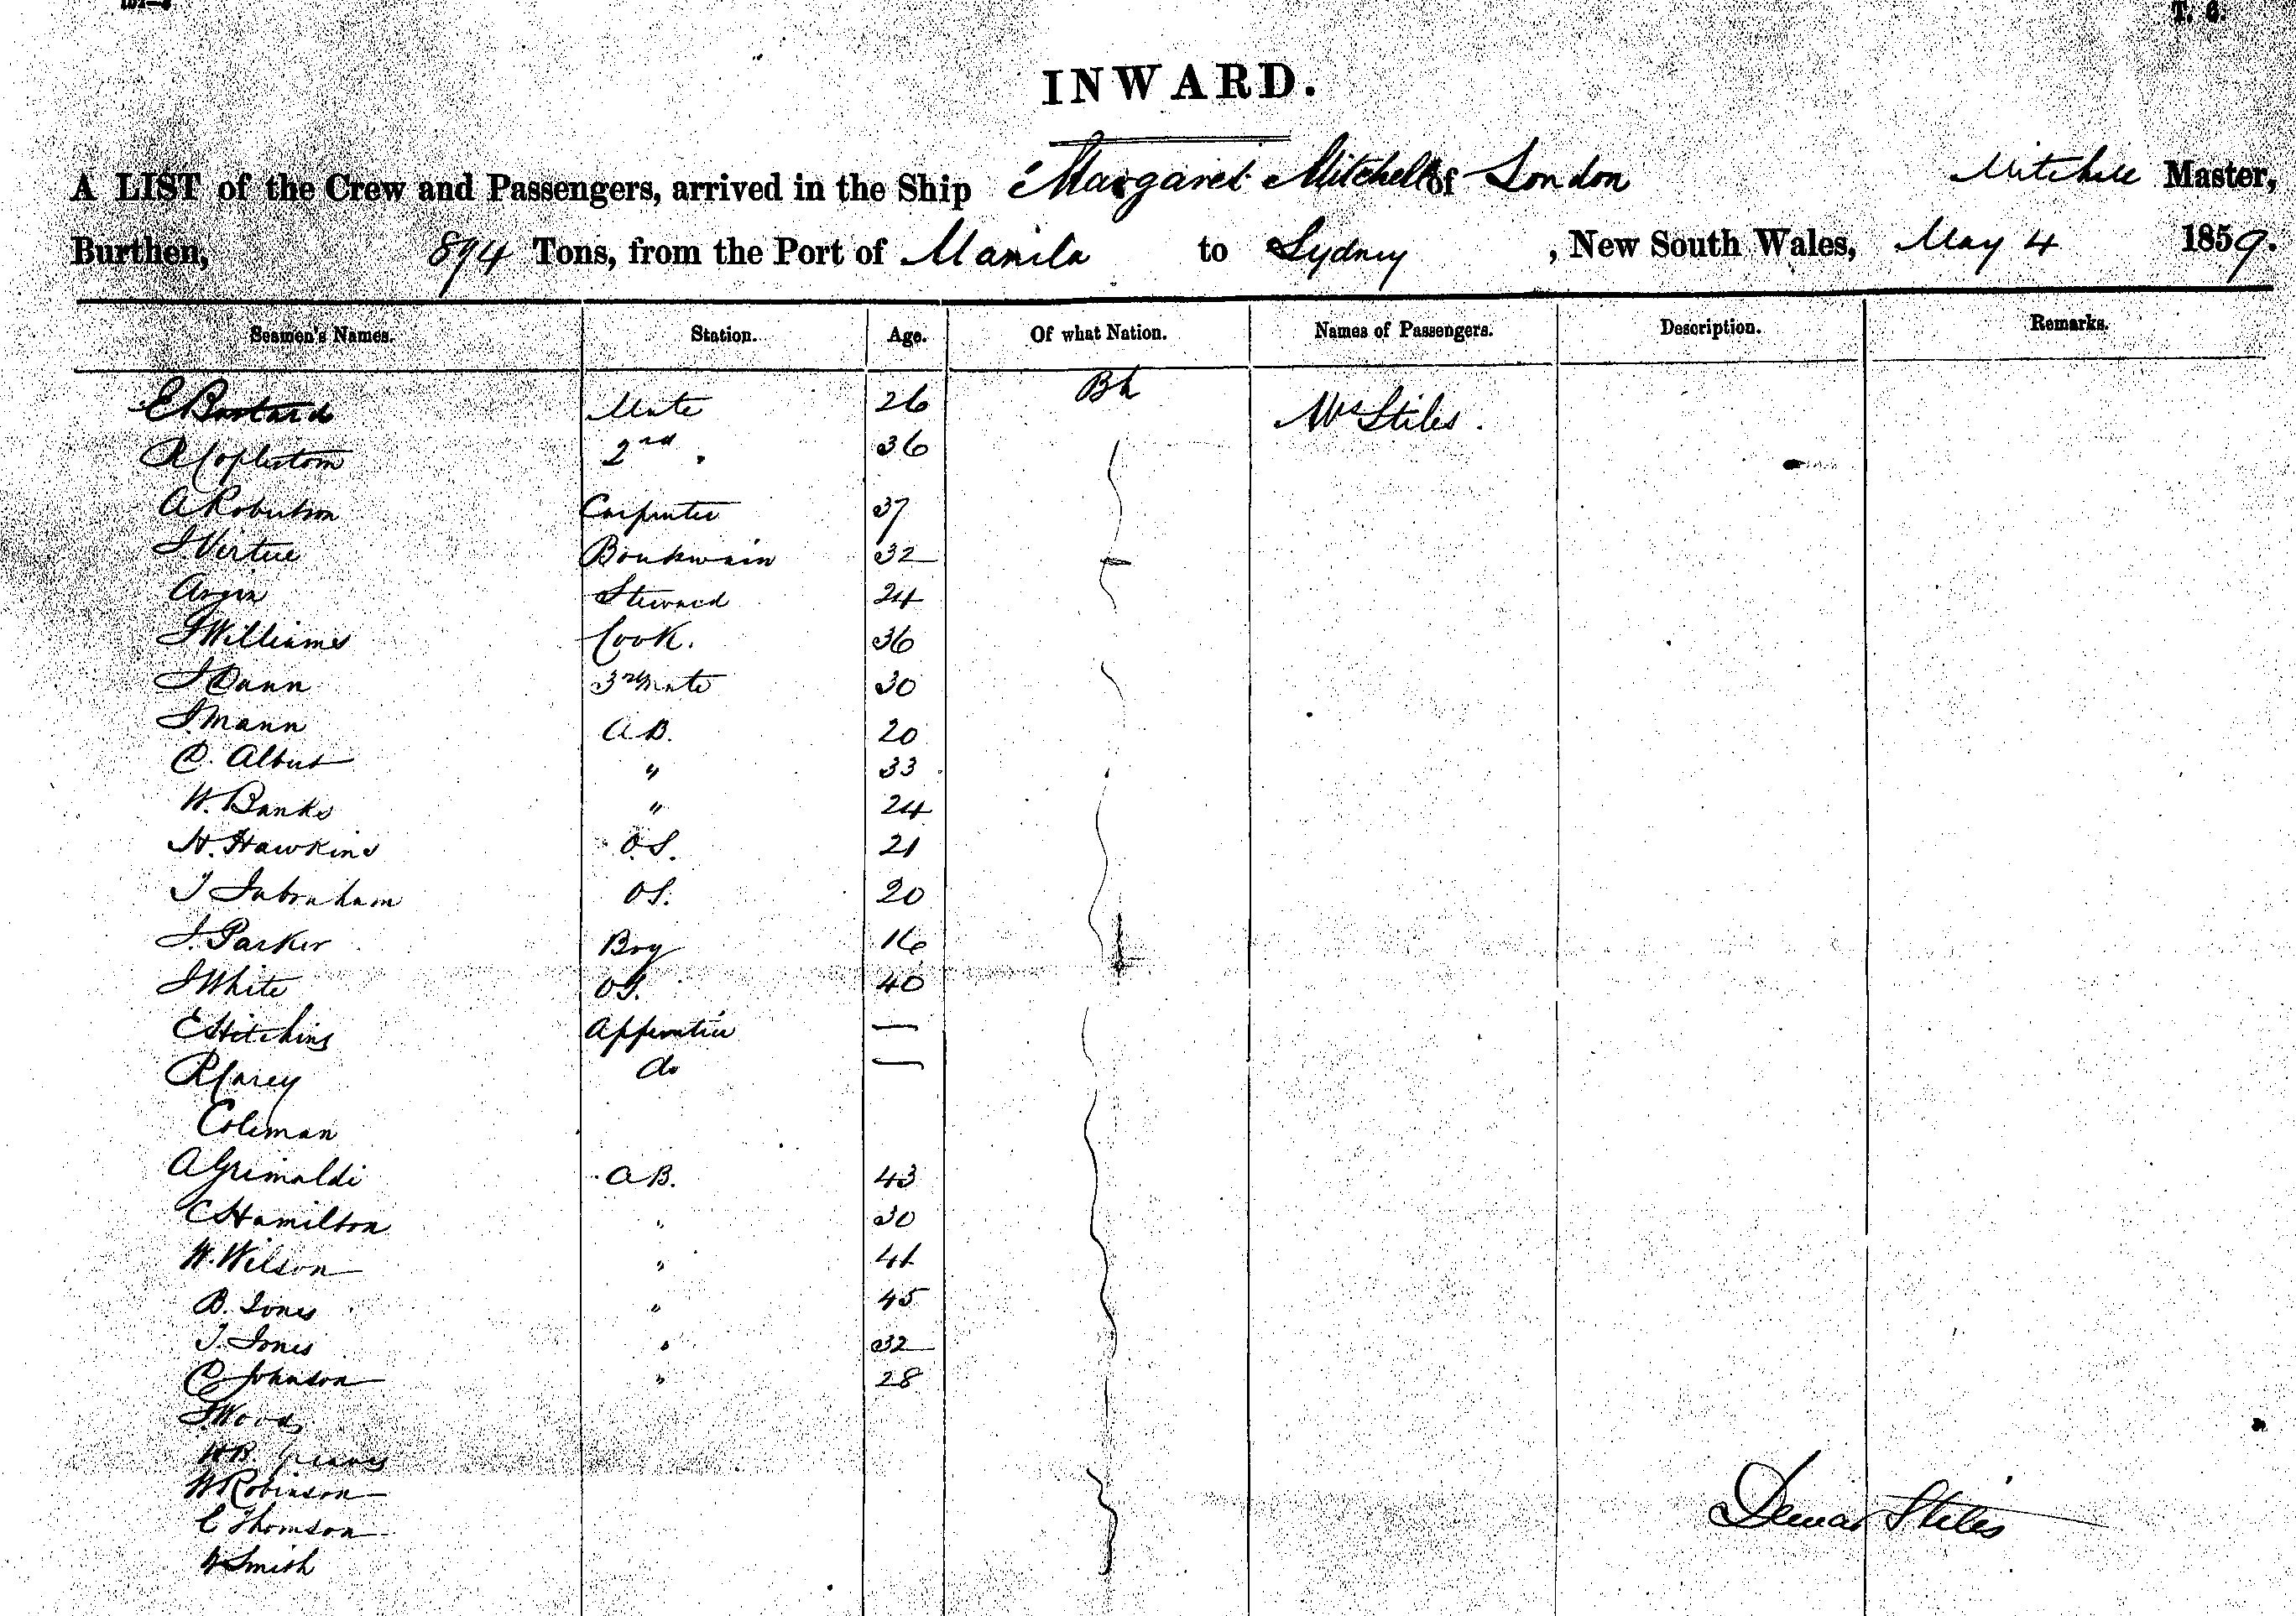 T. 6.
INWARD.
A LIST of the Crew and Passengers, arrived in the Ship Margaret Mitchell of London Mitchell Master,
Burthen, 894 Tons, from the Port of Manila to Sydney, New South Wales, May 4 1859.
Seamen's Names. Station. Age. Of what Nation. Names of Passengers. Description. Remarks.
E Bastard Mate 26 Bh Mrs Stiles.
R Coplestom 2nd " 36
A Robertson Carpenter 37
J. Virtue Boatswain 32
Argin Steward 24
J Williams Cook. 36
J Dann 3rd Mate 30
J. Mann AB. 20
C. Albut " 33
W. Banks " 24
H. Hawkins O.S. 21
T Inbraham OS. 20
J. Parker Boy 16
J White OS. 40
E Hitchins Apprentice —
R Carey do —
Coleman
A Grimaldi AB. 43
C Hamilton " 30
W. Wilson " 41
B. Jones " 45
T. Jones " 32
C Johnson " 28
J. Wood
W Robinson
C Thomson
Smith
Stiles